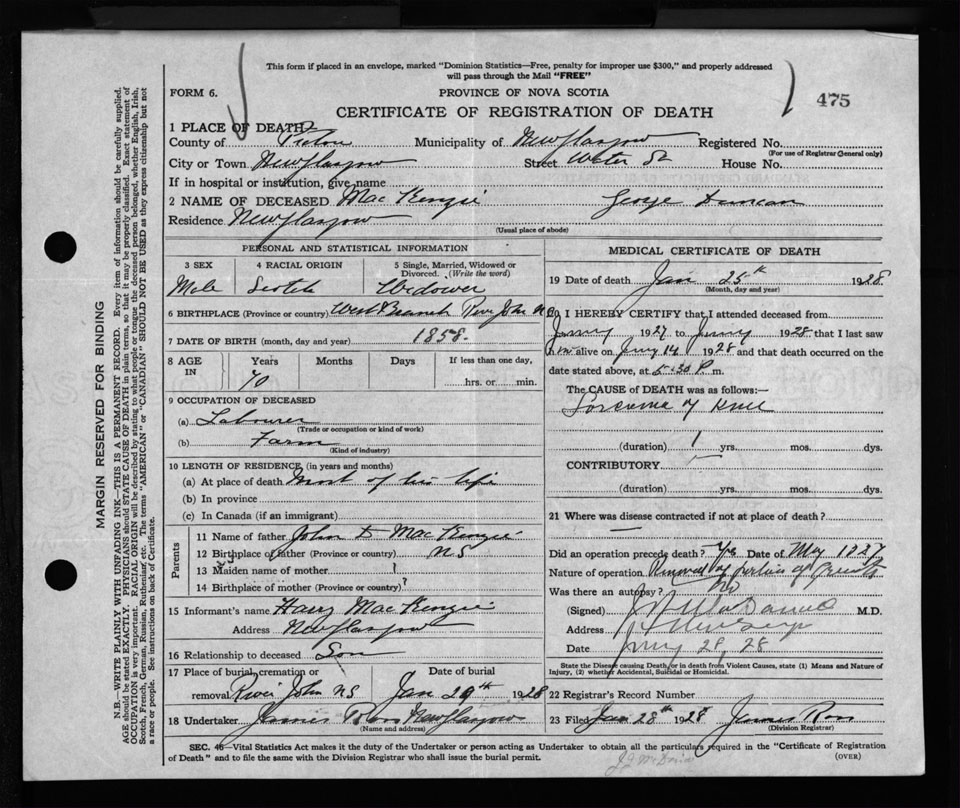 This form if placed in an envelope, marked "Dominion Statistics—Free, penalty for improper use $300," and properly addressed
will pass through the Mail "FREE"
FORM 6.
PROVINCE OF NOVA SCOTIA
475
CERTIFICATE OF REGISTRATION OF DEATH
1 PLACE OF DEATH
County of Pictou Municipality of New Glasgow Registered No.
(For use of Registrar General only)
City or Town New Glasgow Street Water St House No.
If in hospital or institution, give name
2 NAME OF DECEASED Mac Kenzie George Duncan
Residence New Glasgow
(Usual place of abode)
PERSONAL AND STATISTICAL INFORMATION
3 SEX 4 RACIAL ORIGIN 5 Single, Married, Widowed or
Divorced. (Write the word)
Male Scotch Widower
6 BIRTHPLACE (Province or country) West Branch River John N.S.
7 DATE OF BIRTH (month, day and year) 1858.
8 AGE IN Years Months Days If less than one day,
70 hrs. or min.
9 OCCUPATION OF DECEASED
(a) Labourer
(Trade or occupation or kind of work)
(b) Farm
(Kind of industry)
10 LENGTH OF RESIDENCE (in years and months)
(a) At place of death Most of his life
(b) In province
(c) In Canada (if an immigrant)
Parents
11 Name of father John D Mac Kenzie
12 Birthplace of father (Province or country) N S
13 Maiden name of mother ?
14 Birthplace of mother (Province or country) ?
15 Informant's name Harry Mac Kenzie
Address New Glasgow
16 Relationship to deceased Son
17 Place of burial, cremation or removal Date of burial
River John N S Jan 29th 1928
18 Undertaker James Ross New Glasgow
(Name and address)
MEDICAL CERTIFICATE OF DEATH
19 Date of death Jan 25th 1928
(Month, day and year)
20 I HEREBY CERTIFY that I attended deceased from
1927 to 1928 that I last saw
him alive on Jany 14 1928 and that death occurred on the
date stated above, at 5.30 P. m.
The CAUSE of DEATH was as follows:—
Sarcoma of Knee
(duration) 1 yrs. mos. dys.
CONTRIBUTORY
(duration) yrs. mos. dys.
21 Where was disease contracted if not at place of death?
—
Did an operation precede death? Yes Date of May 1927
Nature of operation Removal of portion of
Was there an autopsy? No
(Signed) M.D.
Address
Date Jany 28, 28
State the Disease causing Death, or in death from Violent Causes, state (1) Means and Nature of
Injury, (2) whether Accidental, Suicidal or Homicidal.
22 Registrar's Record Number
23 Filed Jan 28th 1928 James Ross
(Division Registrar)
SEC. 46—Vital Statistics Act makes it the duty of the Undertaker or person acting as Undertaker to obtain all the particulars required in the "Certificate of Registration
of Death" and to file the same with the Division Registrar who shall issue the burial permit.
(OVER)
MARGIN RESERVED FOR BINDING
N.B.—WRITE PLAINLY WITH UNFADING INK—THIS IS A PERMANENT RECORD. Every item of information should be carefully supplied.
AGE should be stated EXACTLY. PHYSICIANS should STATE CAUSE OF DEATH in plain terms, so that it may be properly classified. Exact statement of
OCCUPATION is very important. RACIAL ORIGIN will be described by stating to what people or tongue the deceased person belonged, whether English, Irish,
Scotch, French, German, Russian, Ruthenian, etc. The terms "AMERICAN" or "CANADIAN" SHOULD NOT BE USED as they express citizenship but not
a race or people. See instructions on back of Certificate.